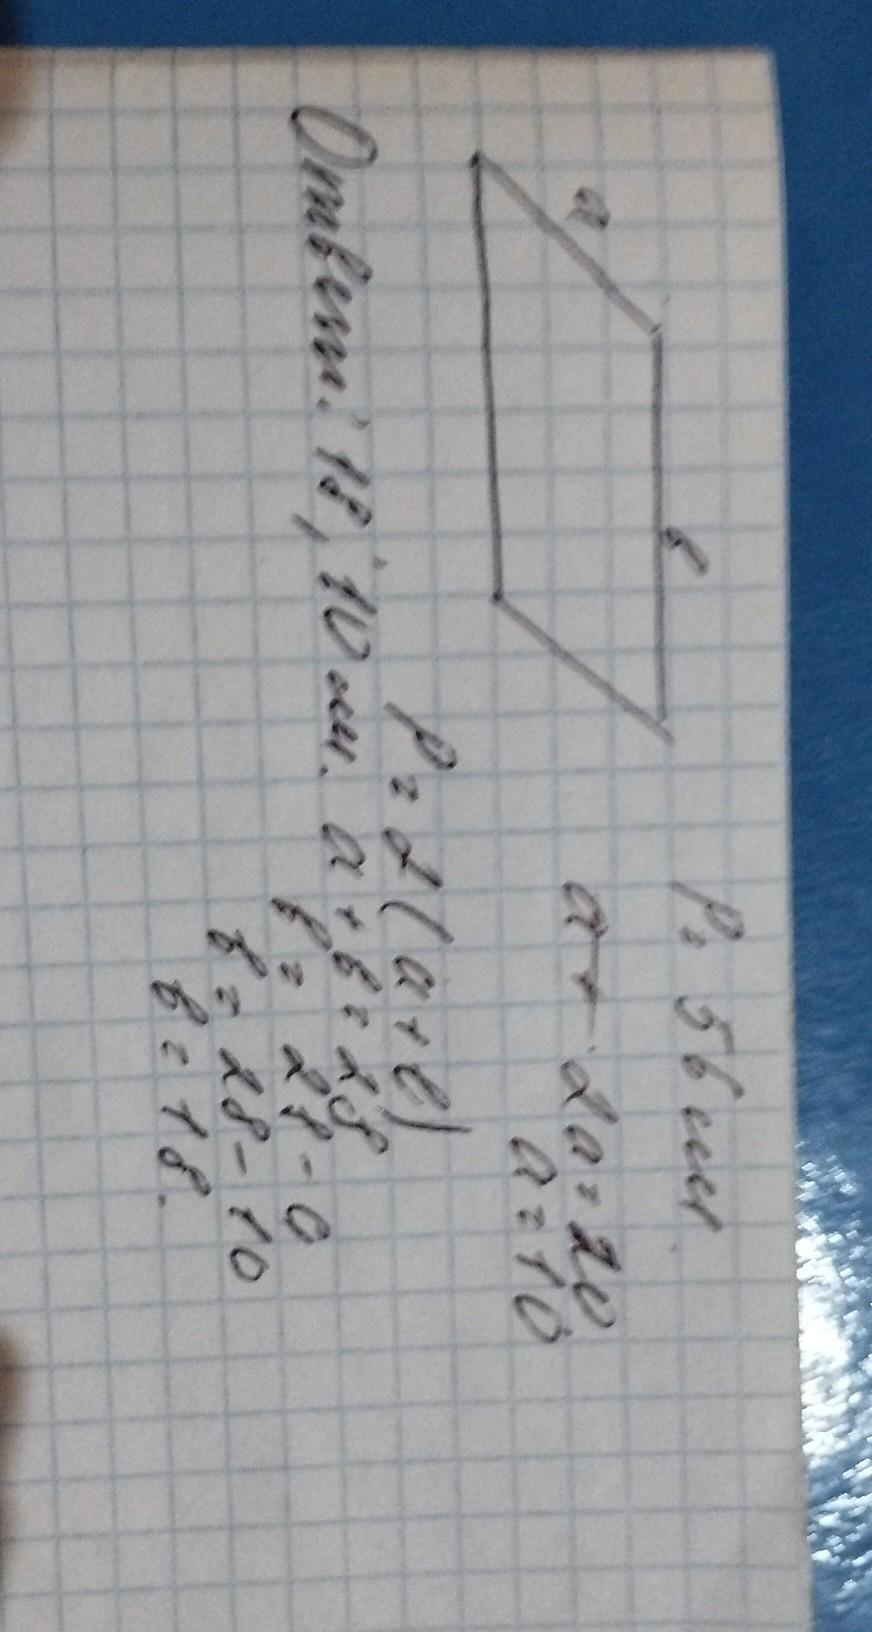 P = 56 см
а
в
2а = 20
а = 10
P = 2(а+в)
а + в = 28
в = 28 - а
в = 28 - 10
в = 18.
Ответ: 18, 10 см.